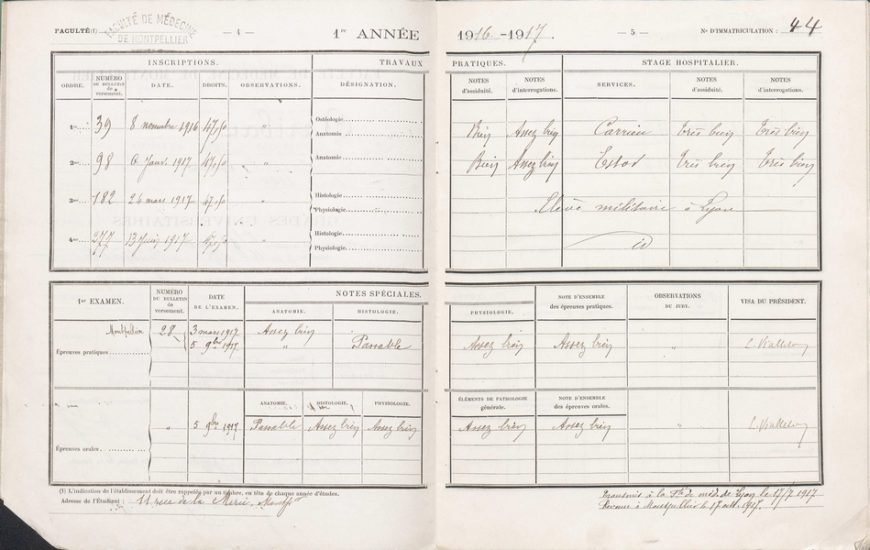 FACULTÉ(1)
FACULTÉ DE MÉDECINE
DE MONTPELLIER
— 4 —
1re ANNÉE
INSCRIPTIONS.
TRAVAUX
ORDRE.
NUMÉRO
DU BULLETIN
de
versement.
DATE.
DROITS.
OBSERVATIONS.
DÉSIGNATION.
1re
39
8 novembre 1916
47,50
"
Ostéologie
Anatomie
2me
98
6 Janv. 1917
47,50
"
Anatomie
3me
182
26 mars 1917
47,50
Histologie
Physiologie
4me
277
13 Juin 1917
"
Histologie
Physiologie
1er EXAMEN.
NUMÉRO
DU BULLETIN
de
versement.
DATE
DE L'EXAMEN.
NOTES SPÉCIALES.
ANATOMIE.
HISTOLOGIE.
Montpellier
28
3 mars 1917
Assez bien
5 9bre 1917
"
Passable
Epreuves pratiques
ANATOMIE.
HISTOLOGIE.
PHYSIOLOGIE.
"
5 9bre 1917
Passable
Assez bien
Assez bien
Épreuves orales
(1) L'indication de l'établissement doit être rappelée par un timbre, en tête de chaque année d'études.
Adresse de l'Étudiant : 11 rue de la Merci,
1916-1917.
— 5 —
N° D'IMMATRICULATION : 44
PRATIQUES.
STAGE HOSPITALIER.
NOTES
d'assiduité.
NOTES
d'interrogations.
SERVICES.
NOTES
d'assiduité.
NOTES
d'interrogations.
Bien
Assez bien
Carrieu
Très bien
Très bien
Bien
Assez bien
Estor
Très bien
Très bien
Elève militaire à Lyon
id
PHYSIOLOGIE.
NOTE D'ENSEMBLE
des épreuves pratiques.
OBSERVATIONS
DU JURY.
VISA DU PRÉSIDENT.
Assez bien
Assez bien
"
ÉLÉMENTS DE PATHOLOGIE
générale.
NOTE D'ENSEMBLE
des épreuves orales.
Assez bien
Assez bien
"
Transmis à la Fté de méd. de Lyon le 17/7 1917
Revenu à Montpellier le 17 oct. 1917.